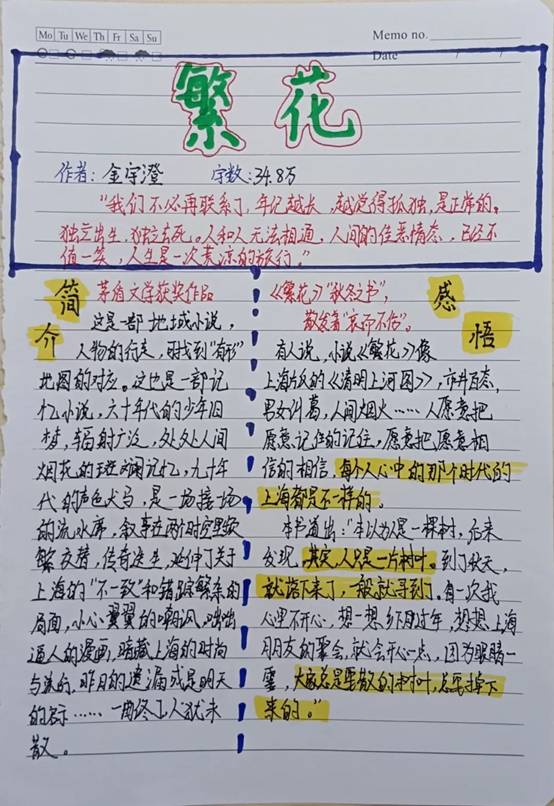 Mo Tu We Th Fr Sa Su
Memo no.
Date / /
繁花
作者：金宇澄 字数：34.8万
“我们不必再联系了，年纪越长，越觉得孤独，是正常的。
独立出生，独立去死。人和人无法相通，人间的佳恶情态，已经不
值一笑，人生是一次荒凉的旅行。”
简介
茅盾文学获奖作品
这是一部地域小说，
人物的行走，可找到“有形”
地图的对应。这也是一部记
忆小说，六十年代的少年旧
梦，辐射广泛，处处人间
烟花的斑斓记忆，九十年
代的声色犬马，是一场接一场
的流水席，叙事在两个时空里频
繁交替，传奇迭生，延伸了关于
上海的“不一致”和错踪繁杂的
局面，小心翼翼的嘲讽，咄咄
逼人的漫画，暗藏上海的时尚
与流向，昨日的遗漏或是明天
的启示……一曲终了，人犹未
散。
感悟
《繁花》“秋冬之书”，
散发着“哀而不伤”。
有人说，小说《繁花》像
上海版的《清明上河图》，市井百态，
男女纠葛，人间烟火……人愿意把
愿意记住的记住，愿意把愿意相
信的相信，每个人心中的那个时代的
上海都是不一样的。
本书道出：“本以为人是一棵树，后来
发现，其实，人只是一片树叶。到了秋天，
就落下来了，一般就寻不到了。每一次我
心里不开心，想一想乡下过年，想想上海
朋友的聚会，就会开心一点，因为眼睛一
霎，大家总是要散的树叶，总要掉下
来的。”